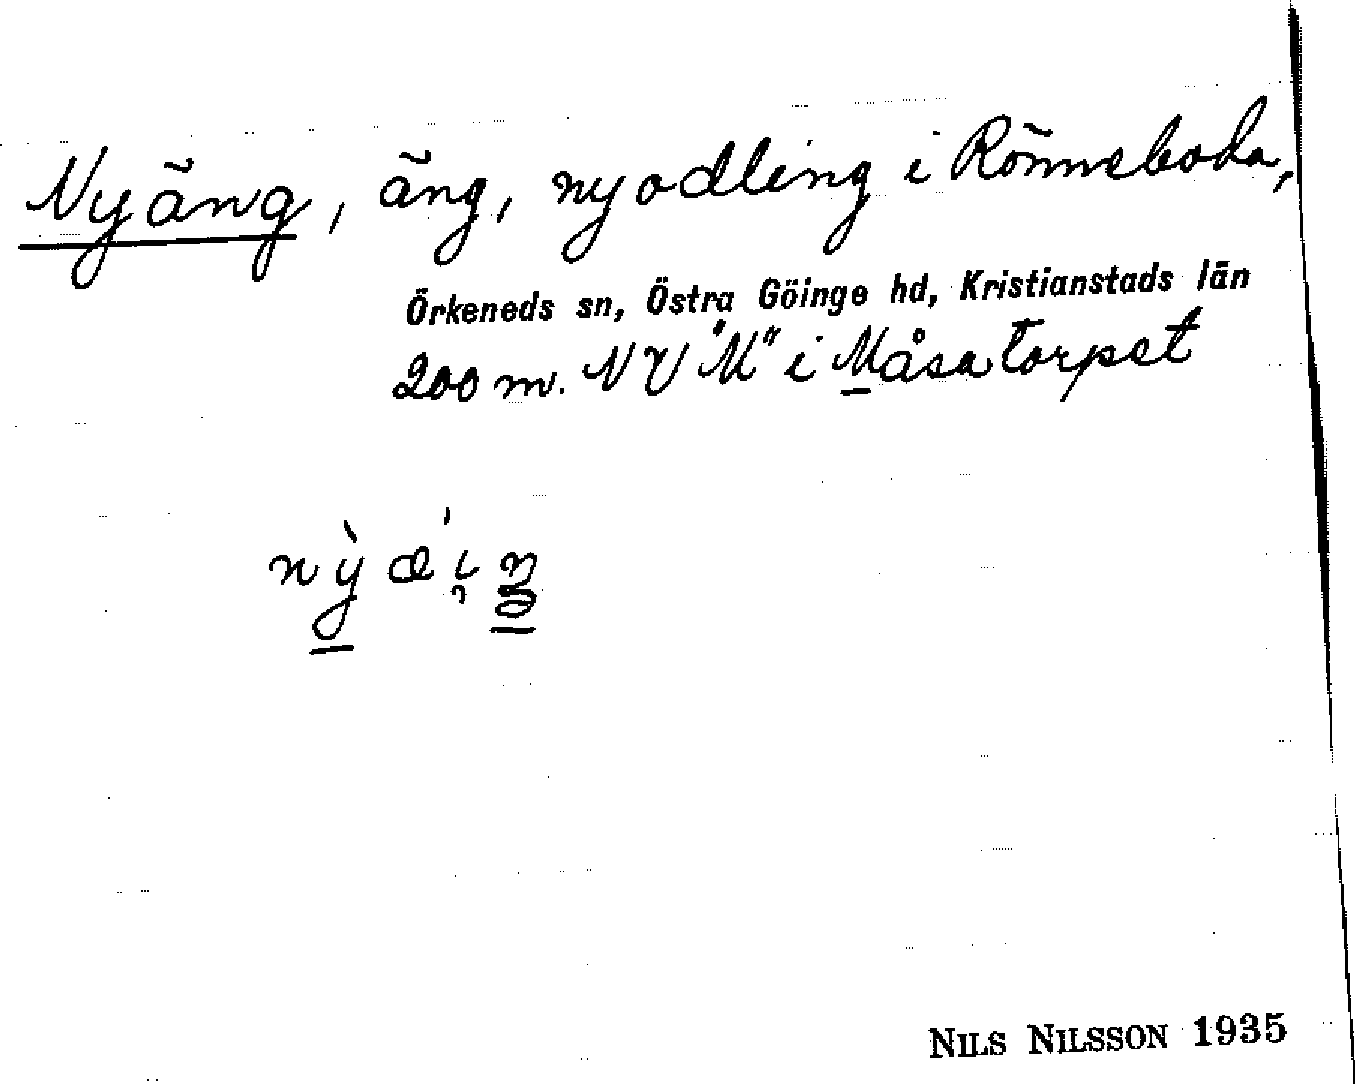 Nyäng, äng, nyodling i Rönneboda,
Örkeneds sn, Östra Göinge hd, Kristianstads län
200 m. NV "M" i Måsatorpet
nỳæ̀i̯ŋ
NILS NILSSON 1935